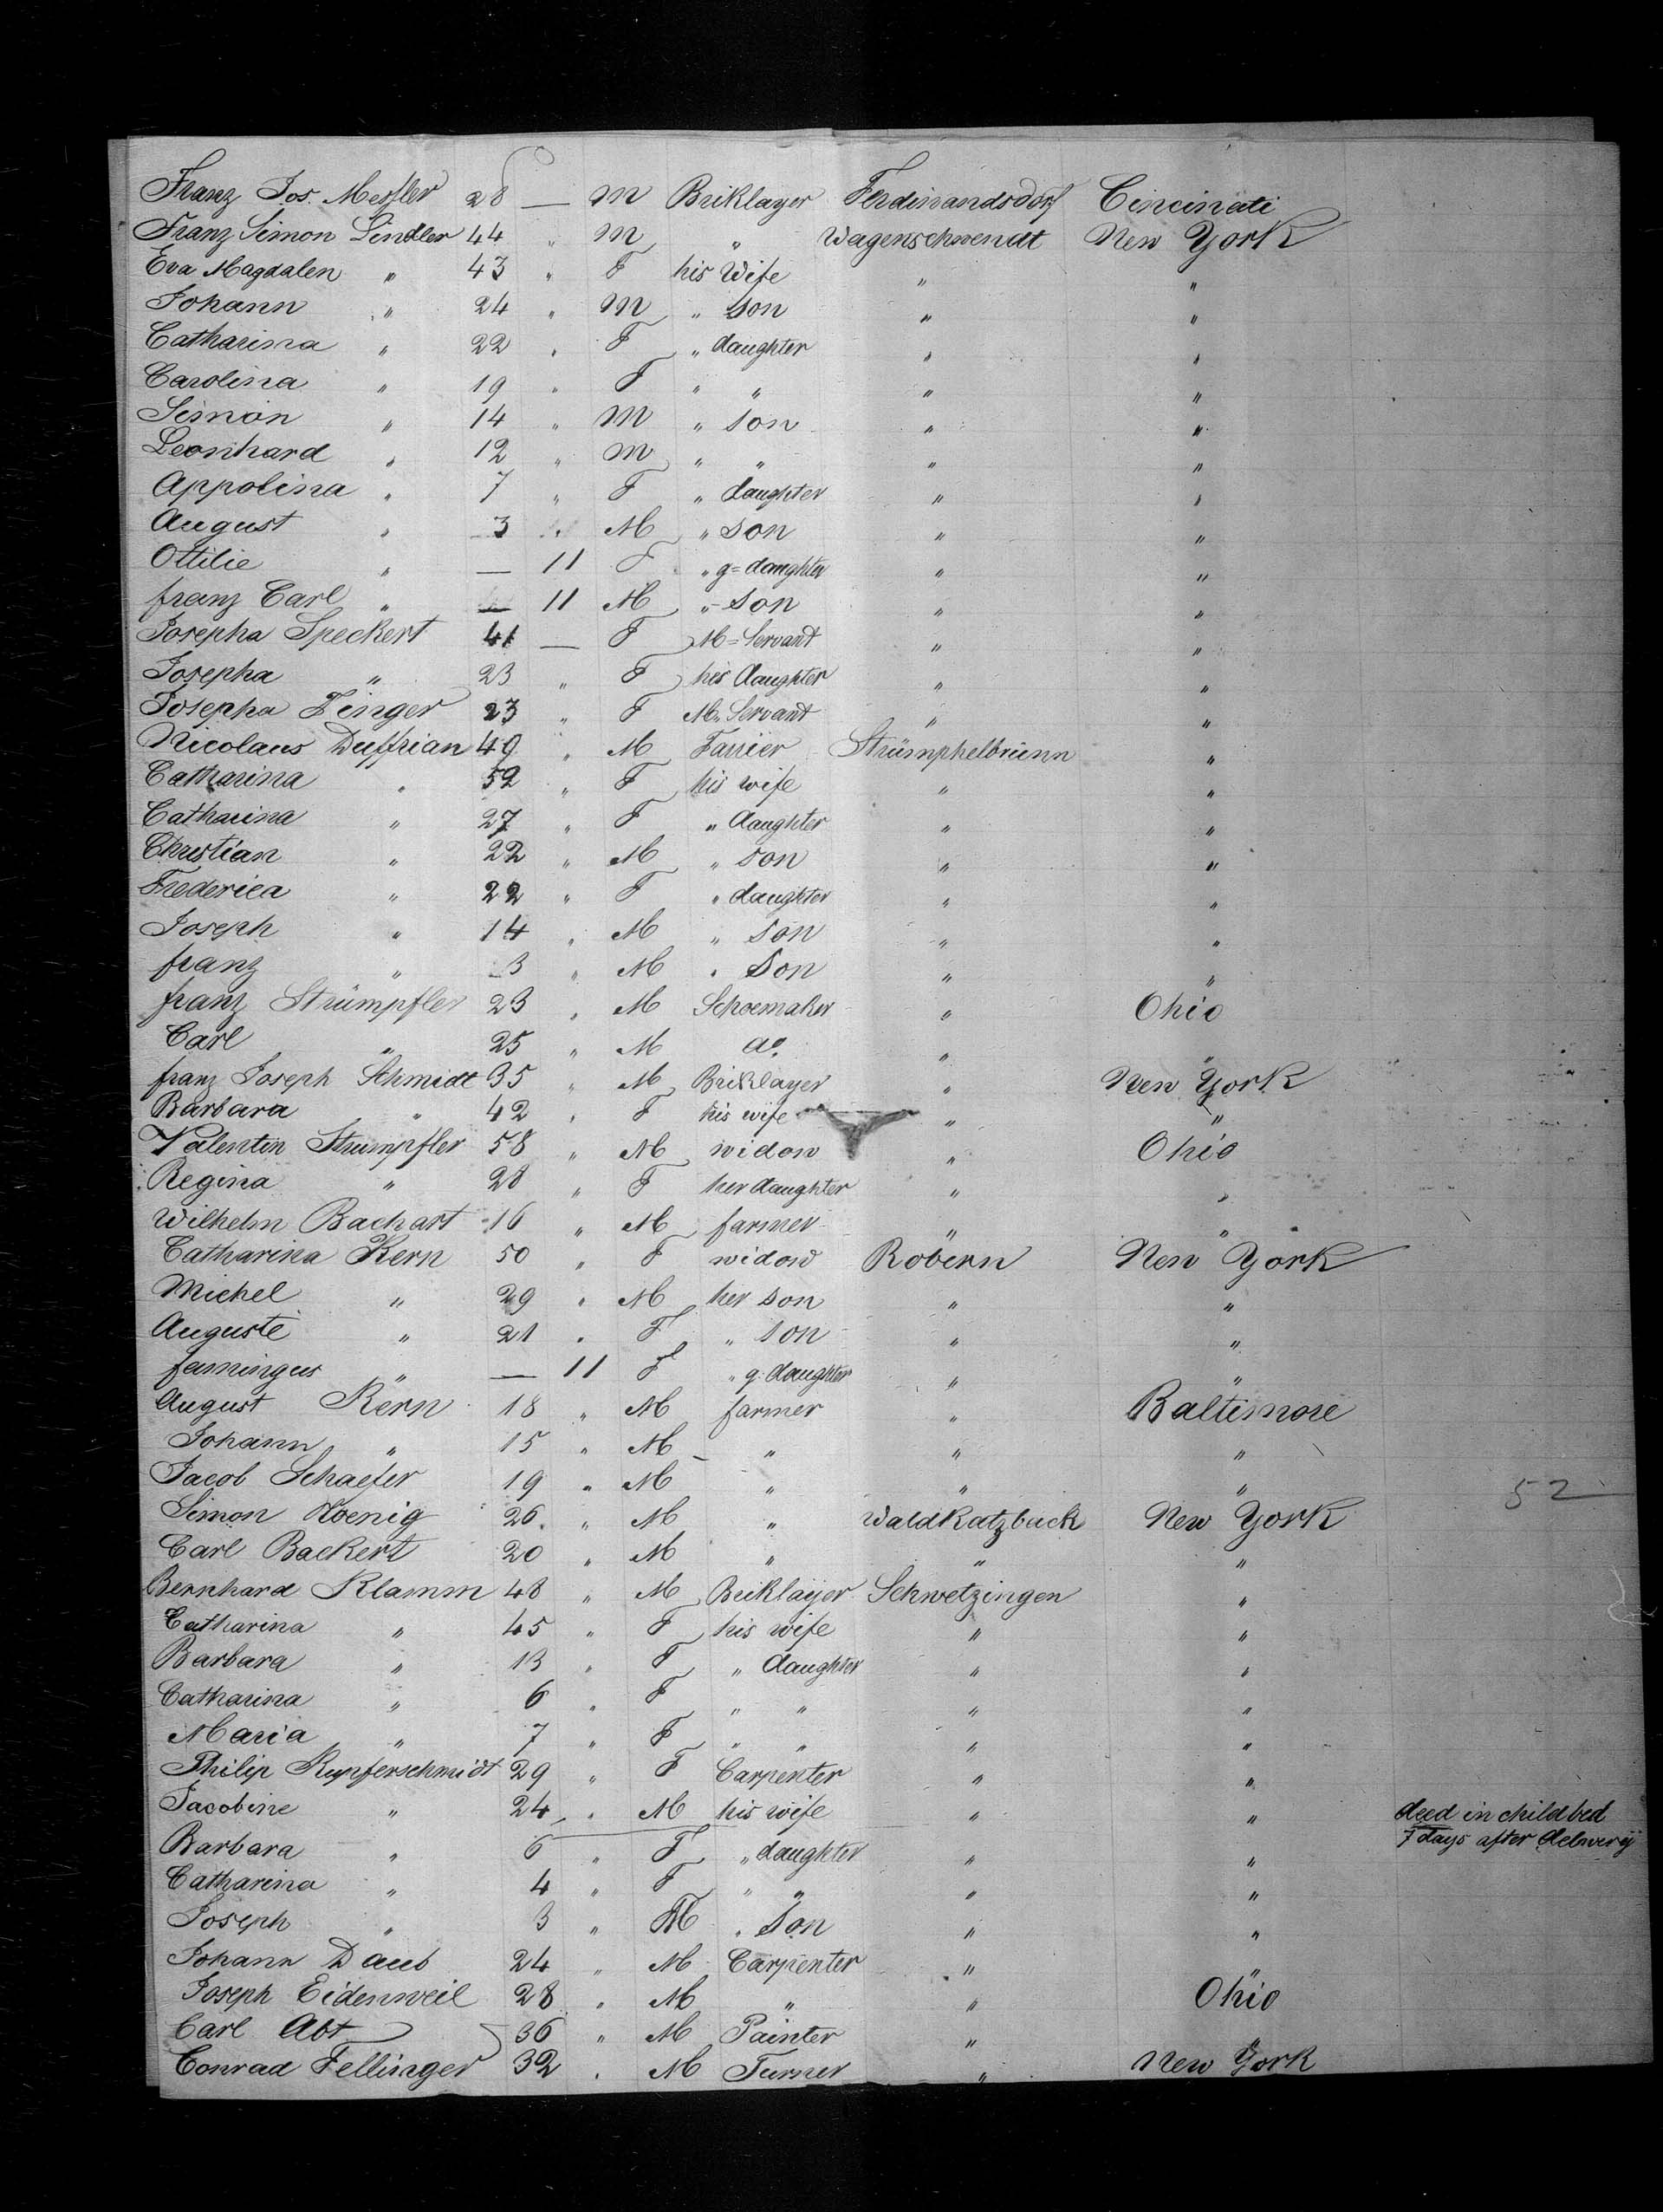 Franz Jos. Messler 28 — M Briklayer Ferdinandsdorf Cincinati
Franz Simon Lindler 44 " M " Wagenschwendt New York
Eva Magdalen " 43 " F his Wife " "
Johann " 24 " M " son " "
Catharina " 22 " F " daughter " "
Carolina " 19 " F " " " "
Simon " 14 " M " son " "
Leonhard " 12 " M " " " "
Appolina " 7 " F " daughter " "
August " 3 " M " son " "
Ottilie " — 11 F " g=daughter " "
franz Carl " — 11 M " son " "
Josepha Speckert 41 — F M=Servant " "
Josepha " 23 " F his daughter " "
Josepha Zinger 23 " F M. Servant " "
Nicolaus Duffrian 49 " M Farrier Strümphelbrünn "
Catharina " 52 " F his wife " "
Catharina " 27 " F " daughter " "
Christian " 22 " M " son " "
Frederica " 22 " F " daughter " "
Joseph " 14 " M " son " "
franz " 3 " M " Son " "
franz Strümpfler 23 " M Schoemaker " Ohio
Carl " 25 " M do. " "
franz Joseph Schmidt 35 " M Briklayer " New York
Barbara " 42 " F his wife " "
Valentin Strumpfler 58 " M widow " Ohio
Regina " 28 " F her daughter " "
Wilhelm Bachart 16 " M farmer " "
Catharina Kern 50 " F widow Robern New York
Michel " 29 " M her son " "
Auguste " 21 " F " son " "
" — 11 F " g. daughter " "
August Kern 18 " M farmer " Baltimore
Johann " 15 " M " " "
Jacob Schaefer 19 " M " " "
52
Simon Hoenig 26 " M " Waldkatzback New York
Carl Backert 20 " M " " "
Bernhard Klamm 48 " M Briklayer Schwetzingen "
Catharina " 45 " F his wife " "
Barbara " 13 " F " daughter " "
Catharina " 6 " F " " " "
Maria " 7 " F " " " "
Philip Kupferschmidt 29 " F Carpenter " "
Jacobine " 24 " M his wife " " died in childbed
7 days after delivery
Barbara " 6 " F " daughter " "
Catharina " 4 " F " " " "
Joseph " 3 " M " Son " "
Johann Daub 24 " M Carpenter " "
Joseph Eidenweil 28 " M " " Ohio
Carl Abt 36 " M Painter "
Conrad Fellinger 32 " M Turner " New York